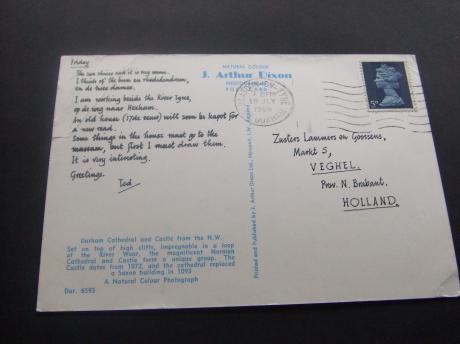 Friday
The sun shines and it is very warm.
I think of the bum en rhododendrum,
en de twee dames.
I am working beside the River Tyne,
op de weg naar Hexham.
An old house (17de eeuw) will soon be kapot for
a new road.
Some things in the house must go to the
museum, but first I must draw them.
It is very interesting.
Greetings.
Ted
Durham Cathedral and Castle from the N.W.
Set on top of high cliffs, impregnable in a loop
of the River Wear, the magnificent Norman
Cathedral and Castle form a unique group. The
Castle dates from 1072, and the cathedral replaced
a Saxon building in 1093
A Natural Colour Photograph
Dur. 6593
NATURAL COLOUR
J. Arthur Dixon
PHOTOGRAPHIC
POST CARD
Printed and Published by J. Arthur Dixon Ltd., Newport I.W. England
19 JLY
1968
5D
Zusters Lammers en Goossens,
Markt 5,
VEGHEL.
Prov. N. Brabant.
HOLLAND.